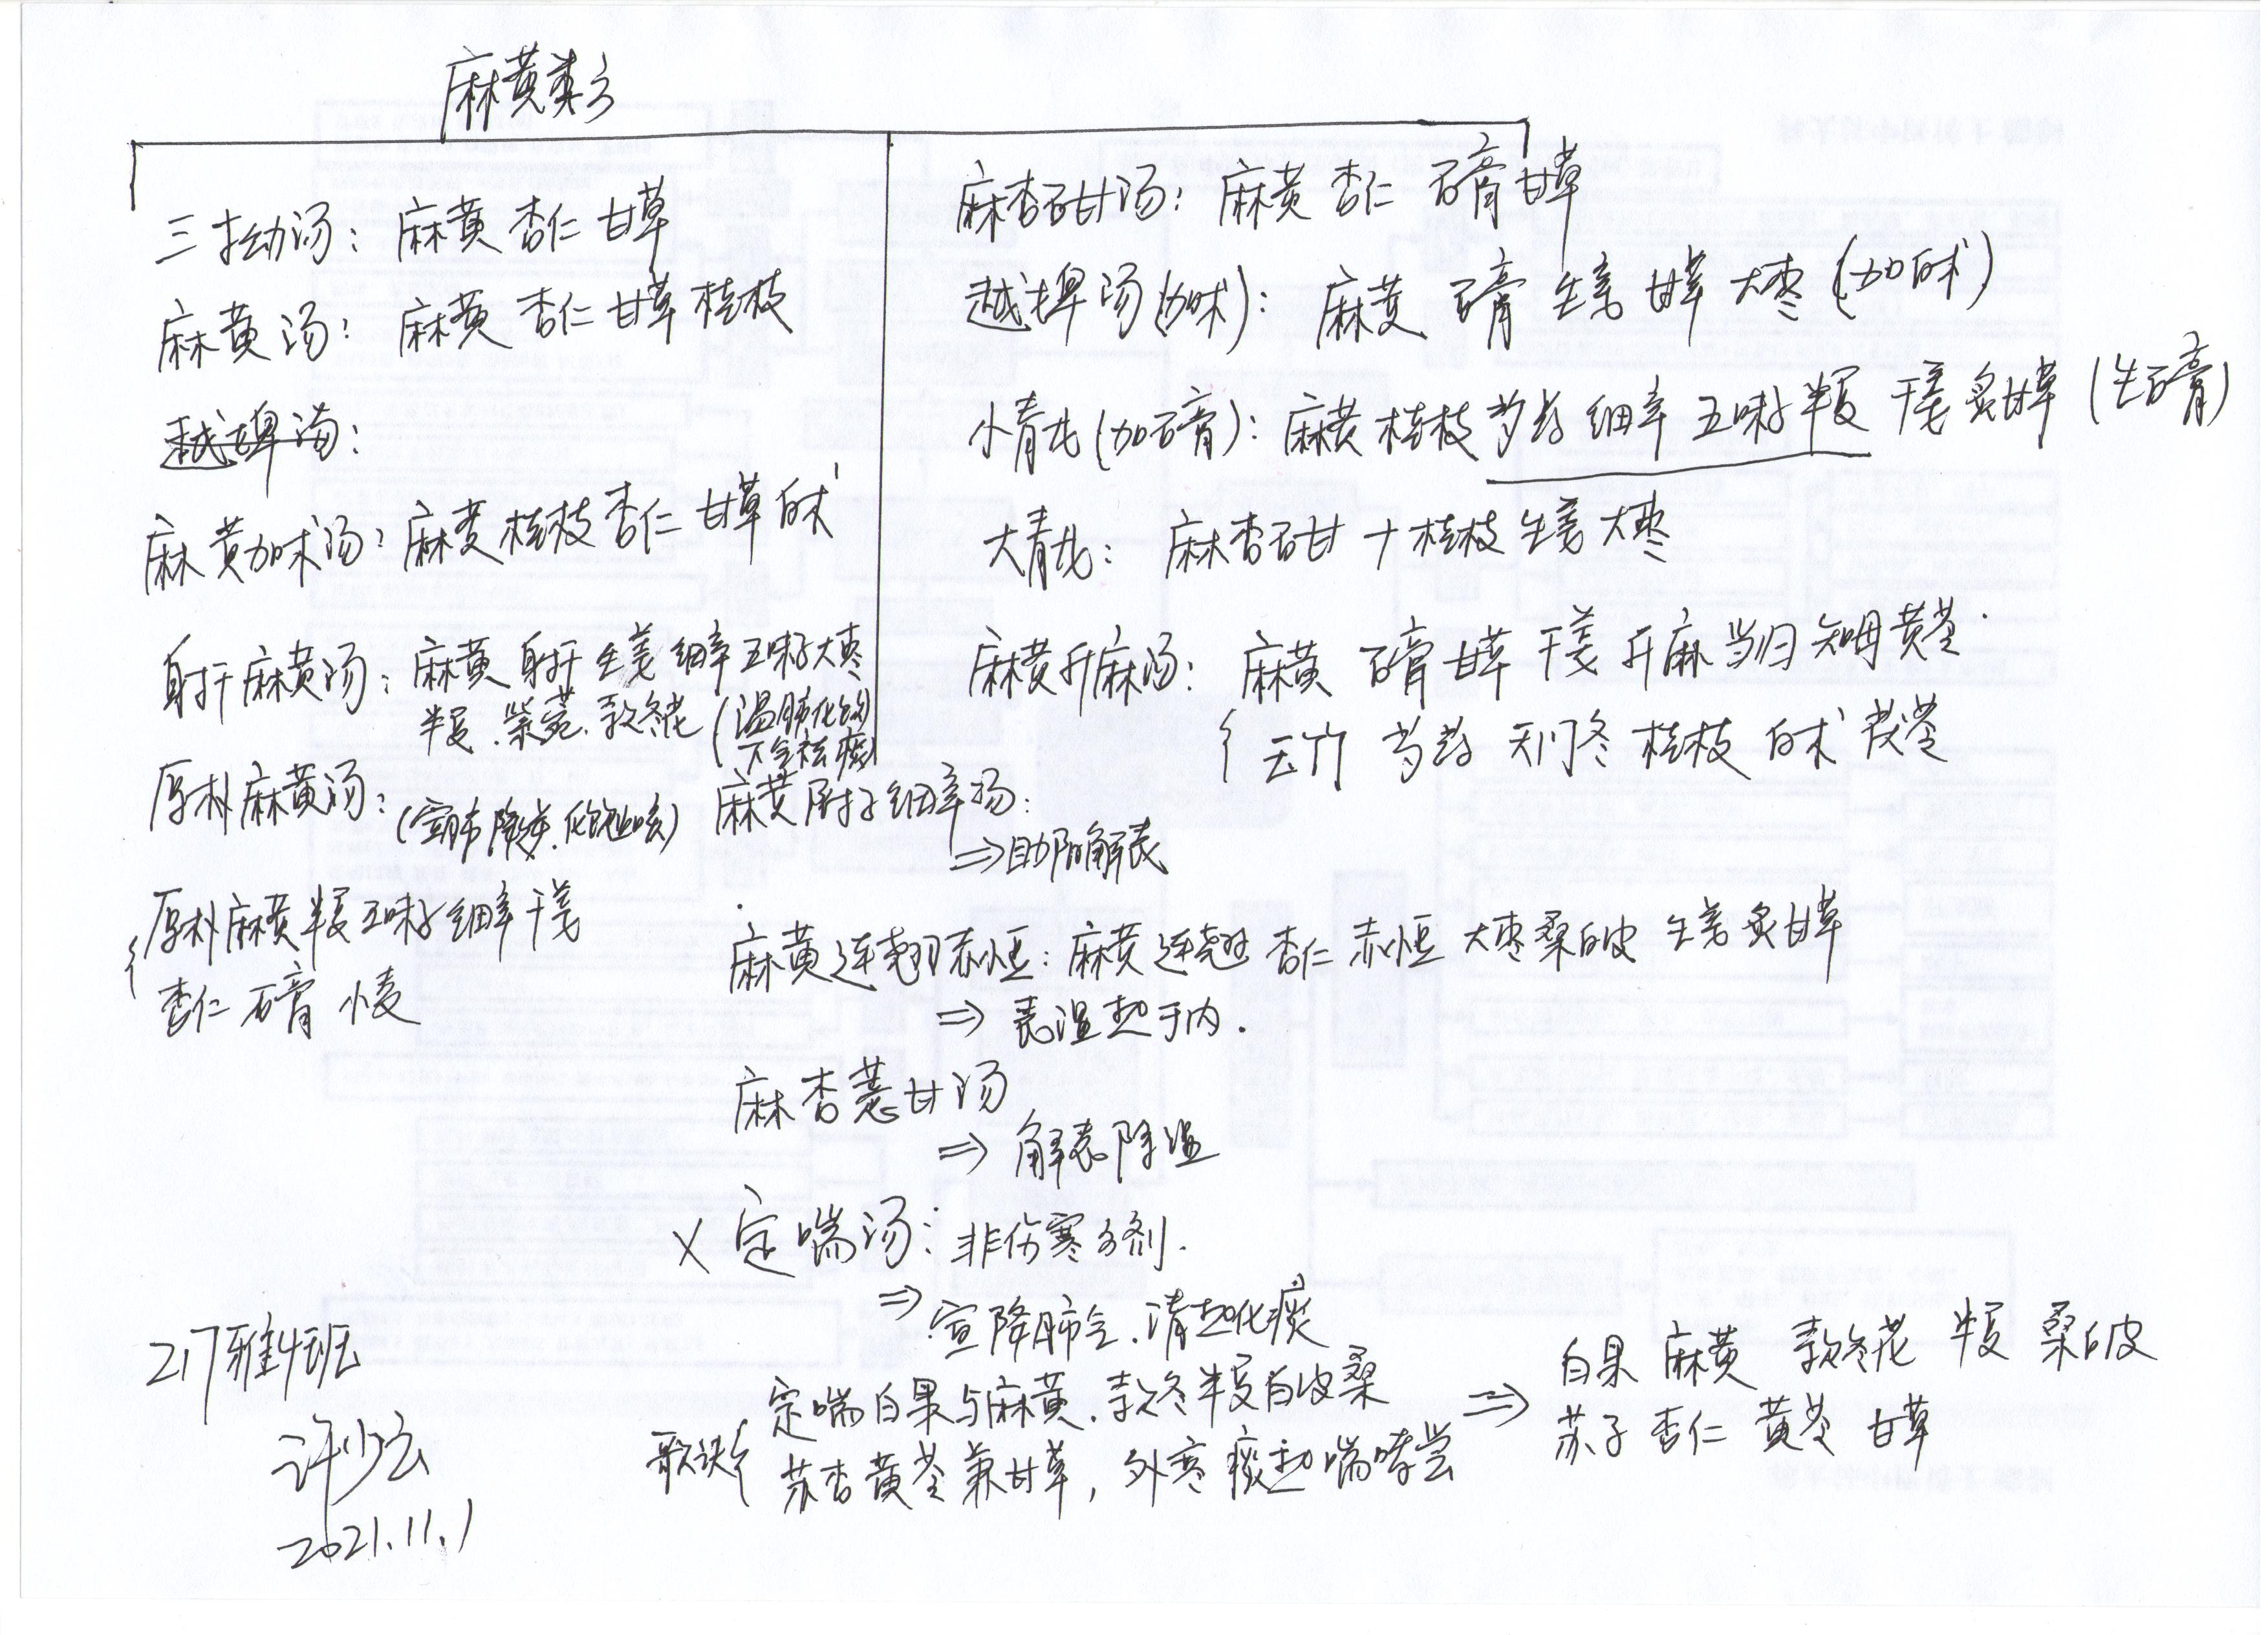 麻黄类方
三拗汤：麻黄 杏仁 甘草
麻黄汤：麻黄 杏仁 甘草 桂枝
越婢汤：
麻黄加术汤：麻黄 桂枝 杏仁 甘草 白术
射干麻黄汤：麻黄 射干 生姜 细辛 五味子 大枣
半夏.紫菀.款冬花（温肺化饮
下气祛痰）
厚朴麻黄汤：（宣肺降逆.化饮止咳）
厚朴 麻黄 半夏 五味子 细辛 干姜
杏仁 石膏 小麦
麻杏石甘汤：麻黄 杏仁 石膏 甘草
越婢汤（加术）：麻黄 石膏 生姜 甘草 大枣（加白术）
小青龙（加石膏）：麻黄 桂枝 芍药 细辛 五味子 半夏 干姜 炙甘草（生石膏）
大青龙：麻杏石甘+桂枝 生姜 大枣
麻黄升麻汤：麻黄 石膏 甘草 干姜 升麻 当归 知母 黄芩.
玉竹 芍药 天门冬 桂枝 白术 茯苓
麻黄附子细辛汤：
⇒助阳解表
麻黄连翘赤小豆：麻黄 连翘 杏仁 赤小豆 大枣 桑白皮 生姜 炙甘草
⇒ 表湿热于内.
麻杏薏甘汤
⇒ 解表除湿
× 定喘汤：非伤寒方剂.
⇒ 宣降肺气.清热化痰
歌诀{定喘白果与麻黄.款冬半夏白皮桑
苏杏黄芩兼甘草，外寒痰热喘哮尝
⇒ 白果 麻黄 款冬花 半夏 桑白皮
苏子 杏仁 黄芩 甘草
217雅4班
许少云
2021.11.1